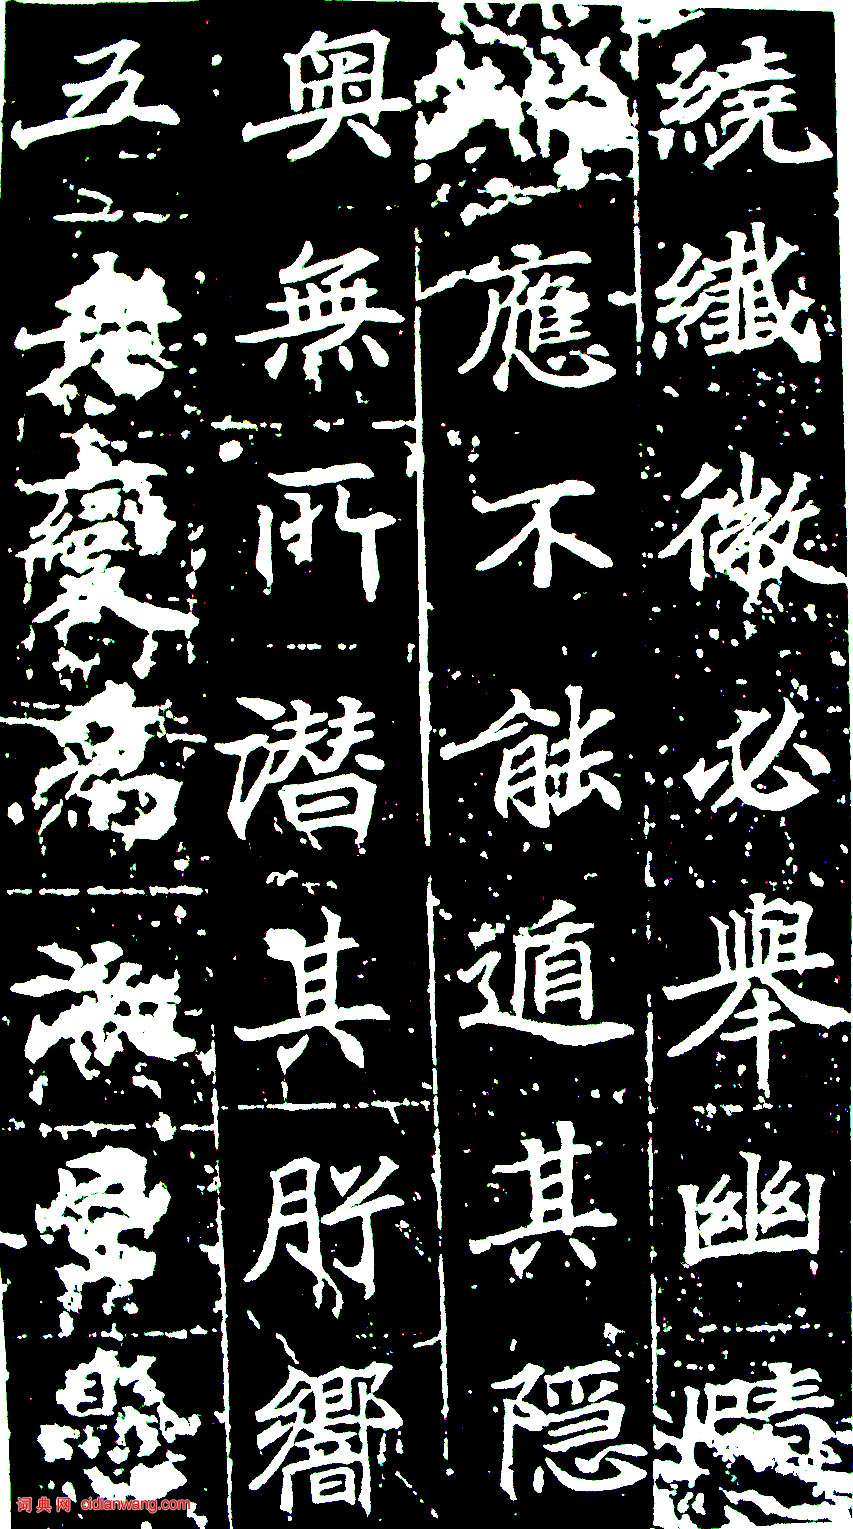 繞纖微必舉幽情
應不能遁其隱
奥無所潛其肸響
五
詞典网 cidianwang.com